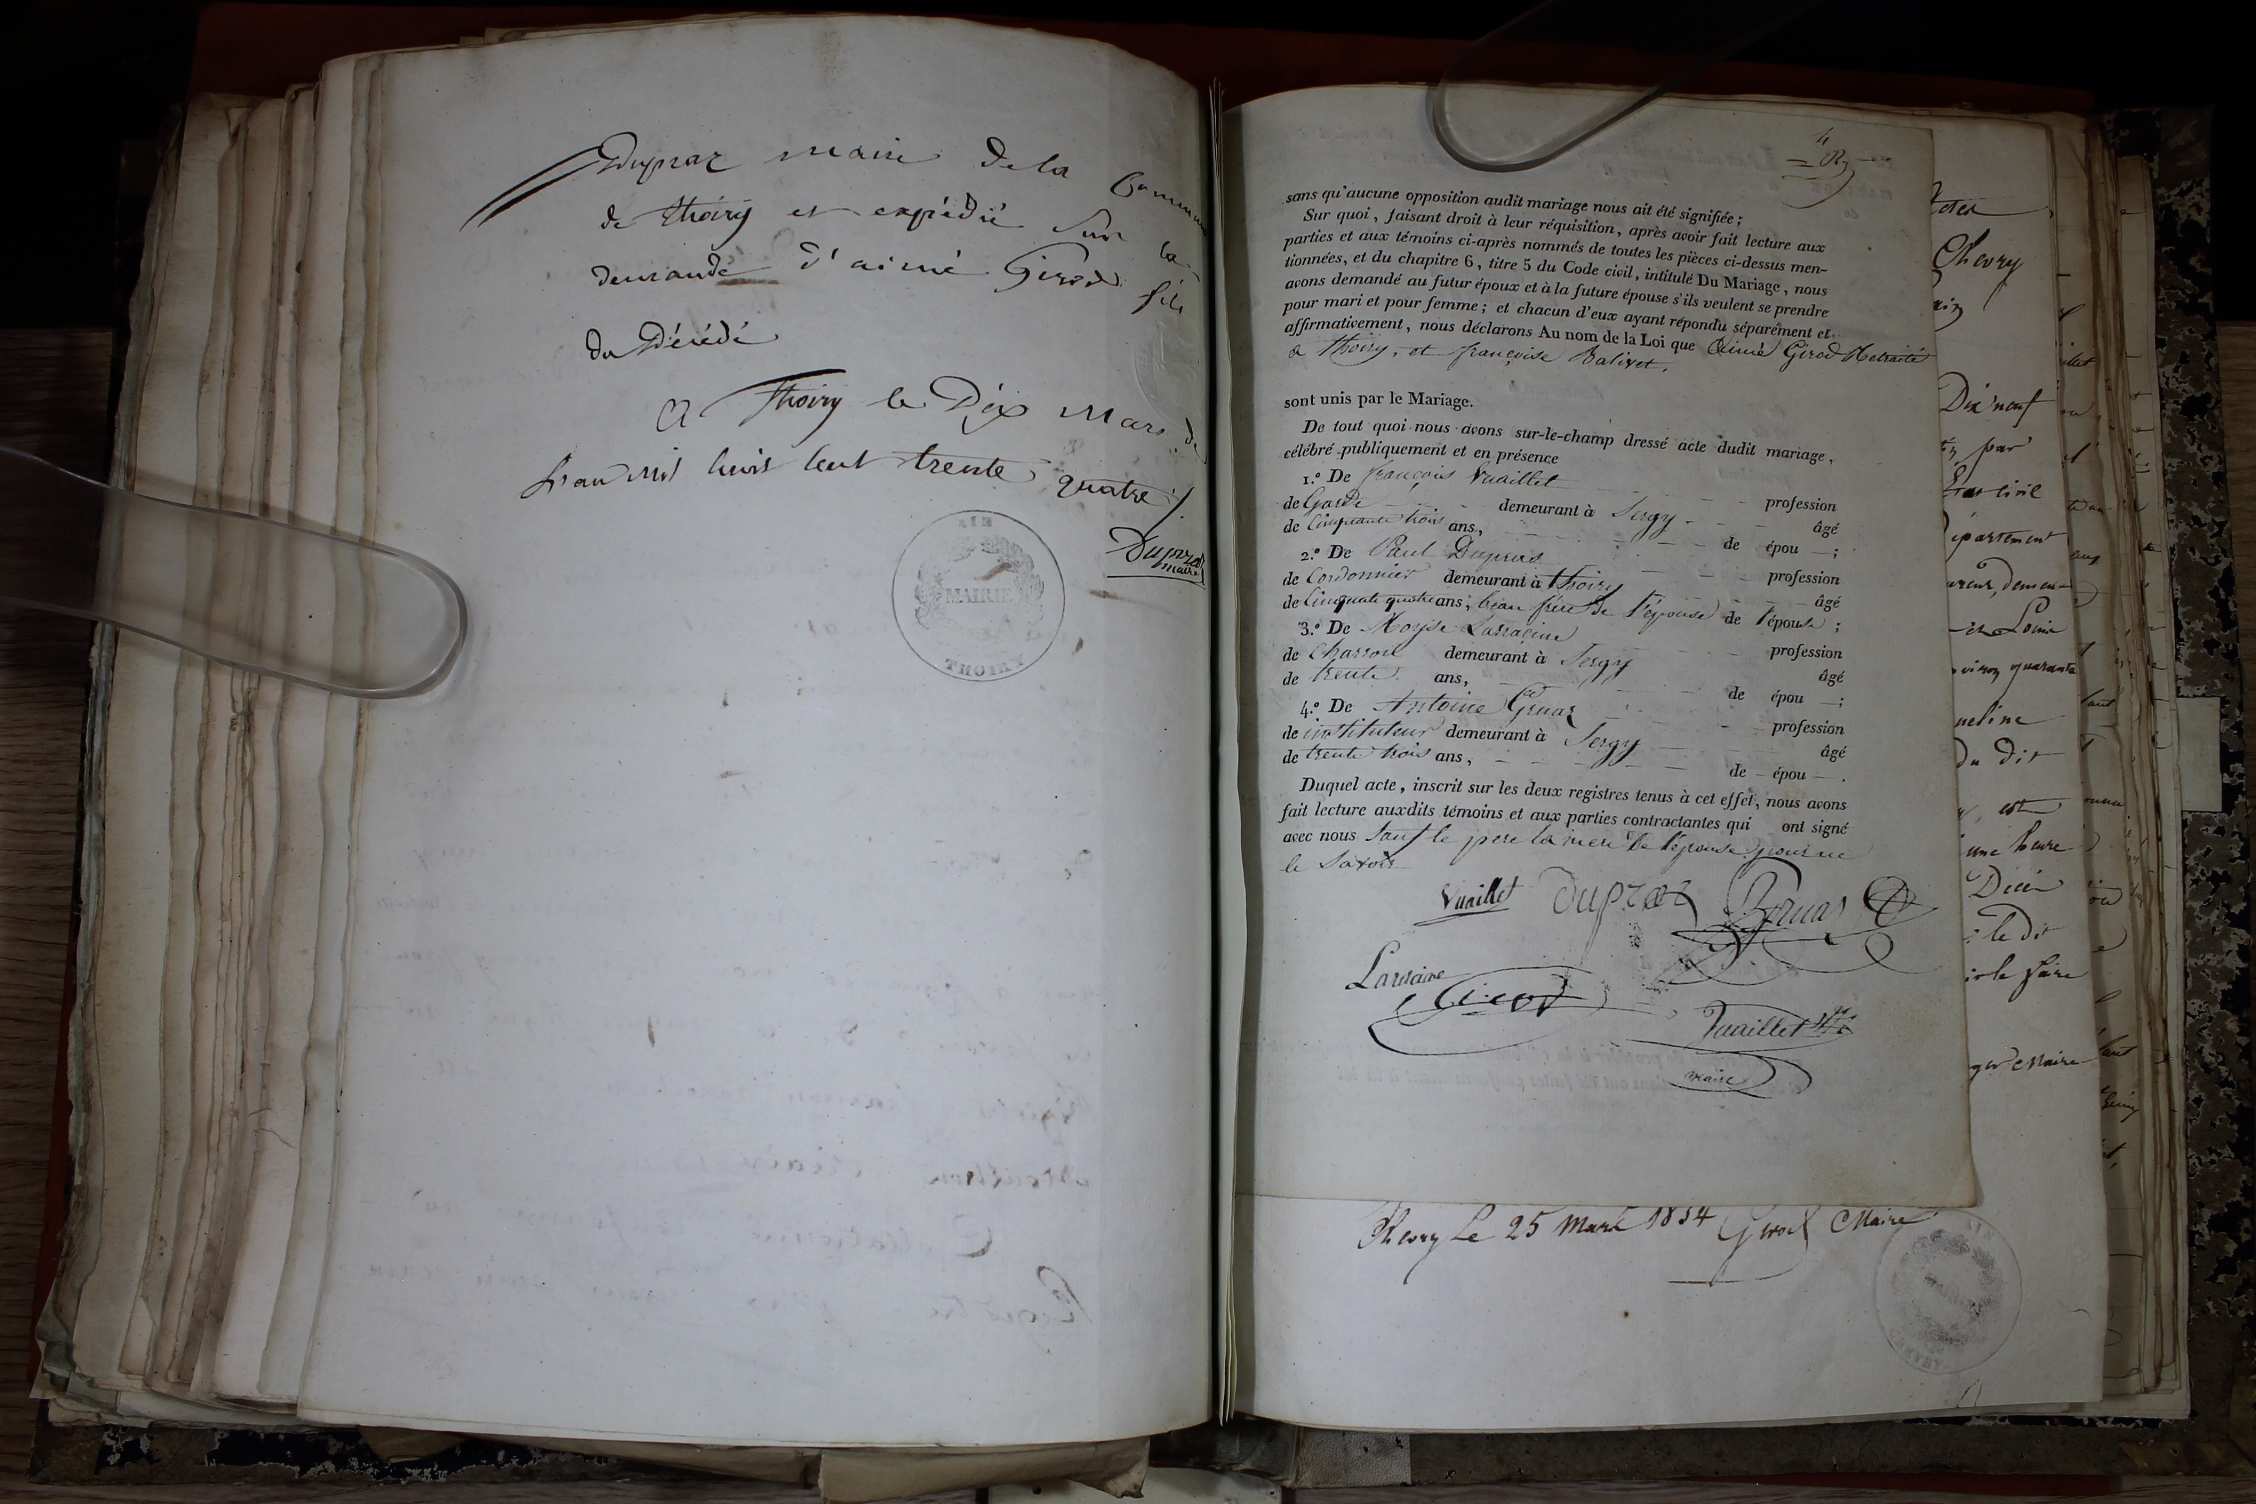 Dupraz maire de la Commune
de thoiry et expédié sur la
demande d'aimé Girod fils
du Décédé
A Thoiry le Dix Mars de
L'an mil huit Cent trente quatre /.
Dupraz
maire
AIN
MAIRIE
THOIRY
4
sans qu'aucune opposition audit mariage nous ait été signifiée ;
Sur quoi, faisant droit à leur réquisition, après avoir fait lecture aux
parties et aux témoins ci-après nommés de toutes les pièces ci-dessus men-
tionnées, et du chapitre 6, titre 5 du Code civil, intitulé Du Mariage, nous
avons demandé au futur époux et à la future épouse s'ils veulent se prendre
pour mari et pour femme ; et chacun d'eux ayant répondu séparément et
affirmativement, nous déclarons Au nom de la Loi que Aimé Girod Retraité
a thoiry, et françoise Balivet.
sont unis par le Mariage.
De tout quoi nous avons sur-le-champ dressé acte dudit mariage,
célébré publiquement et en présence
1.º De françois Vuaillet profession
de Garde demeurant à Sergy âgé
de Cinquante trois ans, de épou ;
2.º De Paul Dupras profession
de Cordonnier demeurant à thoiry âgé
de Cinquate quatre ans, beau frère de l'épouse de l'épouse ;
3.º De Moyse Larracine profession
de Charron demeurant à Sergy âgé
de trente ans, de épou ;
4.º De Antoine Gruaz profession
de instituteur demeurant à Sergy âgé
de trente trois ans, de épou .
Duquel acte, inscrit sur les deux registres tenus à cet effet, nous avons
fait lecture auxdits témoins et aux parties contractantes qui ont signé
avec nous sauf le pere la mere de l'épouse pour ne
le savoir
Vuaillet Dupraz Gruaz
Larracine
Girod
Vuaillet
maire
Chevry Le 25 Mars 1834 Girod Maire
Chevry
Dix neuf
par
civil
département
demeu-
quarante
du dit
est
une heure
le dit
faire
Maire